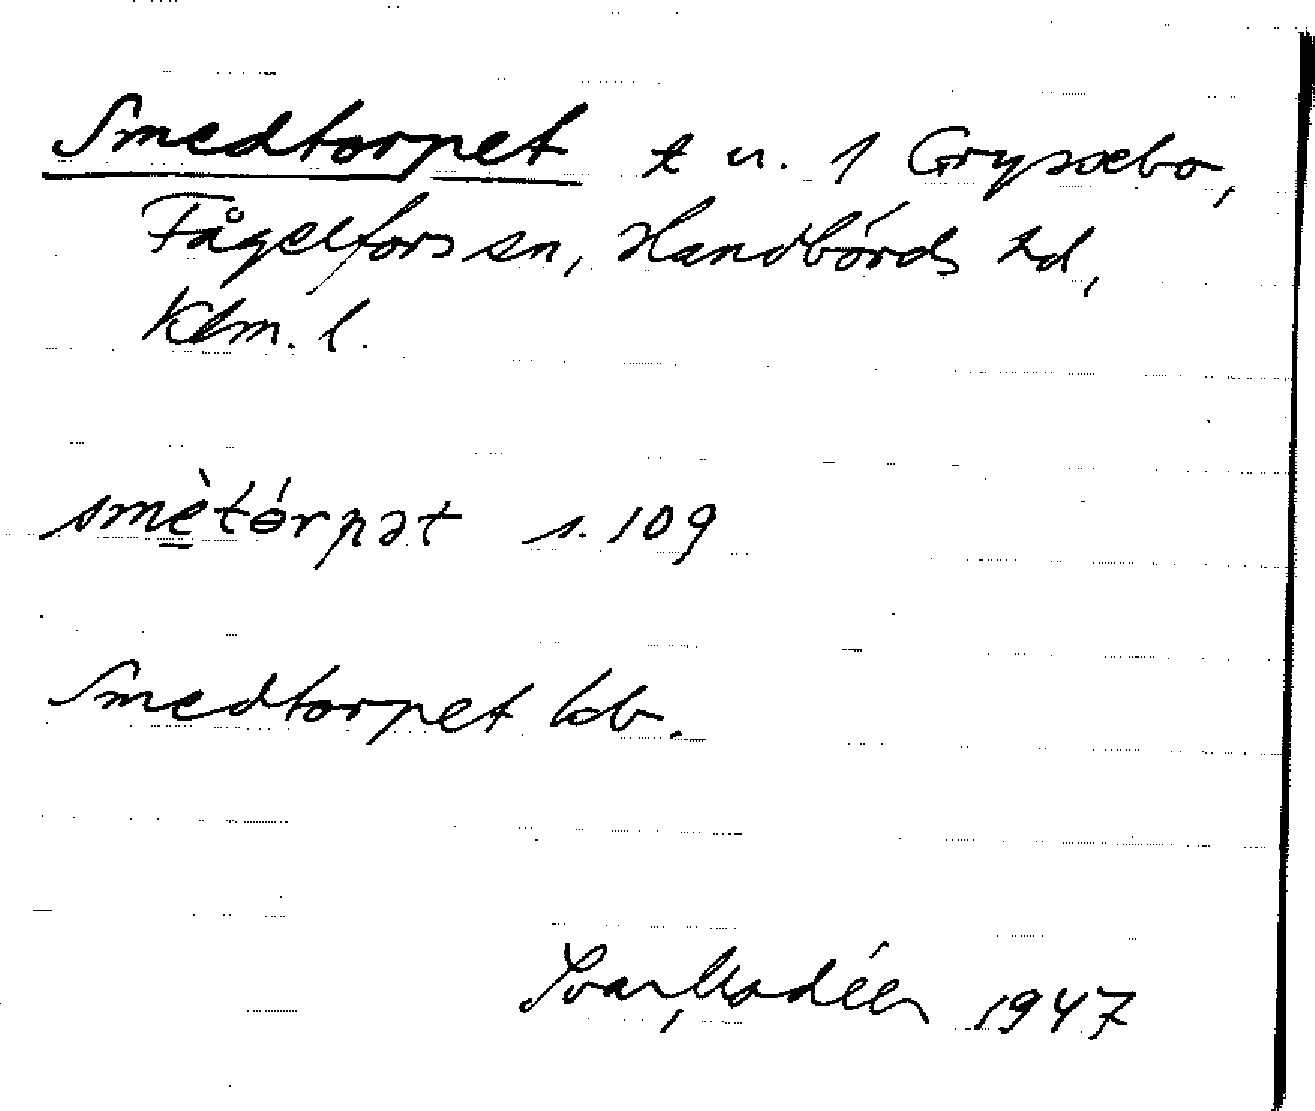 Smedtorpet t u. 1 Grysæbo,
Fågelfors sn, Handbörds hd,
Klm. l.
smètórpət s. 109
Smedtorpet kb.
Ivar Modéer 1947